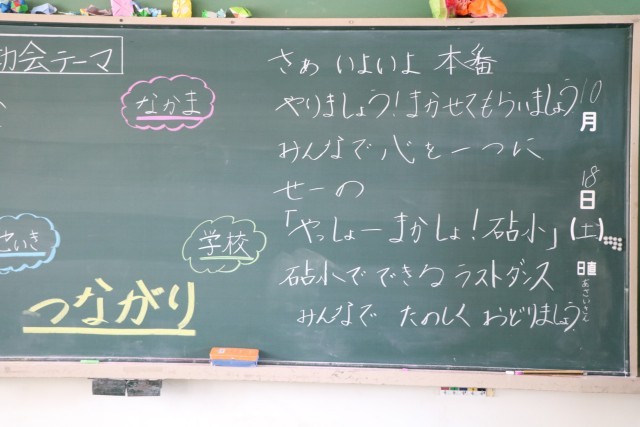 動会テーマ
なかま
学校
つながり
さぁ いよいよ 本番
やりましょう!まかせてもらいましょう
みんなで心を一つに
せーの
「やっしょーまかしょ!砧小」
砧小でできるラストダンス
みんなで たのしく おどりましょう
10
月
18
日
(土)
日直